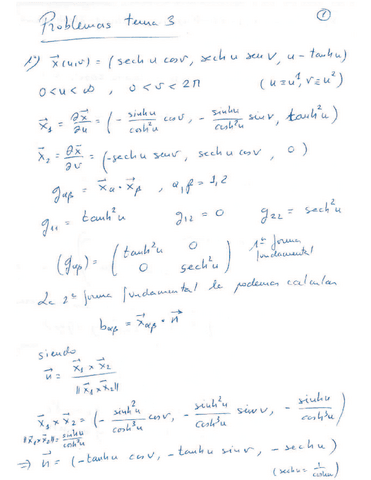 Problemas tema 3
1
1º) x⃗(u,v) = (sech u cos v, sech u sen v, u - tanh u)
0<u<∞ , 0<v<2π (u≡u¹, v≡u²)
x⃗₁ = ∂x⃗/∂u = (- sinhu/cosh²u cos v, - sinhu/cosh²u sin v, tanh²u)
x⃗₂ = ∂x⃗/∂v = (-sech u sen v, sech u cos v, 0)
g_αβ = x⃗_α · x⃗_β , α,β = 1,2
g₁₁ = tanh²u g₁₂ = 0 g₂₂ = sech²u
(g_αβ) = ( tanh²u 0 1ª forma
0 sech²u ) fundamental
La 2ª forma fundamental la podemos calcular
b_αβ = x⃗_αβ · n⃗
siendo
n⃗ = x⃗₁ × x⃗₂ / ||x⃗₁ × x⃗₂||
x⃗₁ × x⃗₂ = (- sinh²u/cosh³u cos v, - sinh²u/cosh³u sin v, - sinhu/cosh³u)
||x⃗₁×x⃗₂|| = sinhu/cosh²u
⇒ n⃗ = (-tanhu cos v, -tanhu sin v, -sech u)
(sech u = 1/cosh u)